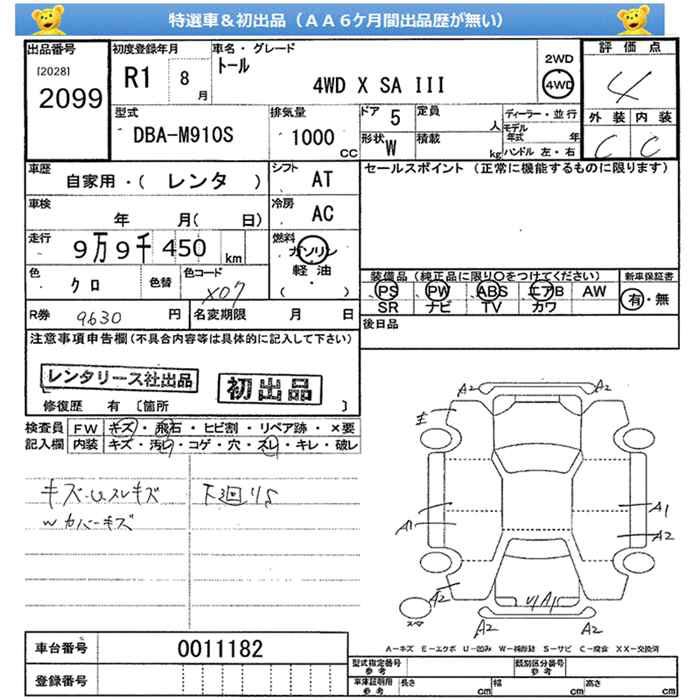 特選車＆初出品（ＡＡ６ケ月間出品歴が無い）
出品番号
[2028]
2099
初度登録年月
R1 8月
車名・グレード
トール
4WD X SA III
2WD
4WD
評価点
4
外装 内装
C C
型式
DBA-M910S
排気量
1000 CC
ドア 5
形状 W
定員 人
積載 kg
ディーラー・並行
モデル年式 年
ハンドル 左・右
車歴
自家用・( レンタ )
シフト AT
セールスポイント（正常に機能するものに限ります）
車検
年 月( 日)
冷房 AC
走行
9万9千450 km
燃料
ガソリン
軽油
( ・ )
色
クロ
色替
色コード
X07
装備品（純正品に限り○をつけてください）
PS PW ABS エアB AW
SR ナビ TV カワ
新車保証書
有・無
R券 9630 円
名変期限 月 日
後日品
注意事項申告欄(不具合内容等は具体的に記入して下さい)
レンタリース社出品
初出品
修復歴 有〔箇所 〕
検査員記入欄
FW キズ・飛石・ヒビ割・リペア跡・×要
内装 キズ・汚れ・コゲ・穴・スレ・キレ・破レ
キズ・U.スレキズ
Wカバーキズ
下廻りS
A2 A2
A1 A1
A2
A2 A2
A2 A2
A－キズ E－エクボ U－凹み W－補修跡 S－サビ C－腐食 XX－交換済
車台番号 0011182
登録番号
型式指定番号 参考
類別区分番号 参考
車庫証明用 参考
長さ cm 幅 cm 高さ cm